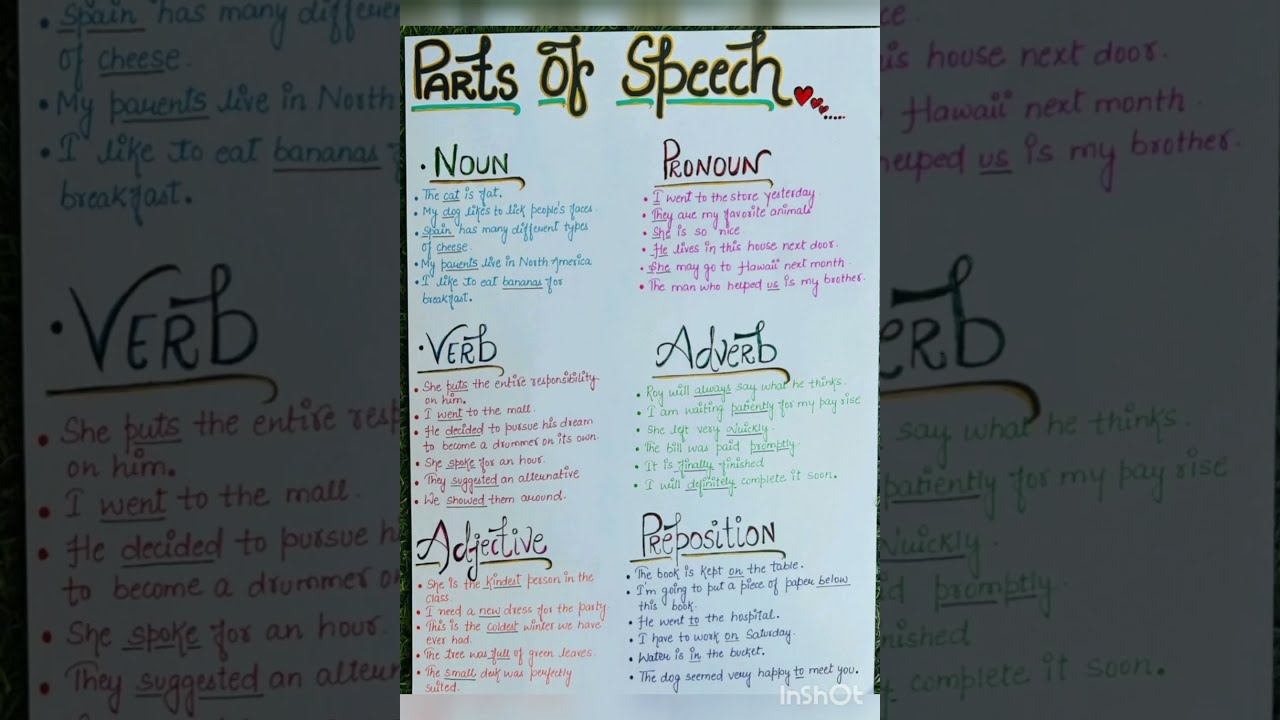 Parts of Speech
• NOUN
• The cat is fat.
• My dog likes to lick people's faces.
• Spain has many different types
of cheese.
• My parents live in North America
• I like to eat bananas for
breakfast.
PRONOUN
• I went to the store yesterday.
• They are my favorite animals
• She is so nice.
• He lives in this house next door.
• She may go to Hawaii next month.
• The man who helped us is my brother.
• VERB
• She puts the entire responsibility
on him.
• I went to the mall.
• He decided to pursue his dream
to become a drummer on its own.
• She spoke for an hour.
• They suggested an alternative
• We showed them around.
Adverb
• Roy will always say what he thinks.
• I am waiting patiently for my pay rise
• She left very quickly.
• The bill was paid promptly.
• It is finally finished
• I will definitely complete it soon.
Adjective
• She is the kindest person in the
class.
• I need a new dress for the party.
• This is the coldest winter we have
ever had.
• The tree was full of green leaves.
• The small desk was perfectly
suited.
PREPOSITION
• The book is kept on the table.
• I'm going to put a piece of paper below
this book.
• He went to the hospital.
• I have to work on Saturday.
• Water is in the bucket.
• The dog seemed very happy to meet you.
InShOt